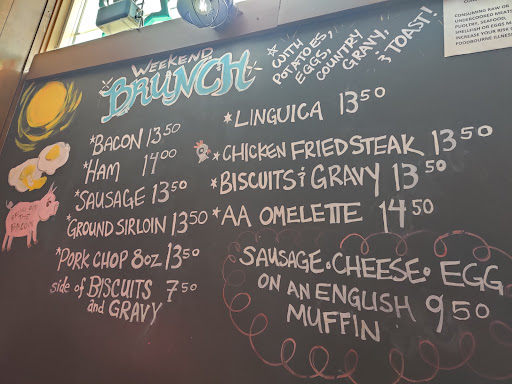 WEEKEND
BRUNCH
*WITH
POTATOES,
EGGS,
COUNTRY
GRAVY,
& TOAST!
*BACON 13 50
*HAM 14 00
*SAUSAGE 13 50
*GROUND SIRLOIN 13 50
*PORK CHOP 8oz 13 50
side of BISCUITS 7 50
and GRAVY
*LINGUICA 13 50
*CHICKEN FRIED STEAK 13 50
*BISCUITS & GRAVY 13 50
*AA OMELETTE 14 50
SAUSAGE • CHEESE • EGG
ON AN ENGLISH 9 50
MUFFIN
BACON
CONSUMING RAW OR
UNDERCOOKED MEATS
POULTRY, SEAFOOD,
SHELLFISH OR EGGS M
INCREASE YOUR RISK
FOODBOURNE ILLNES